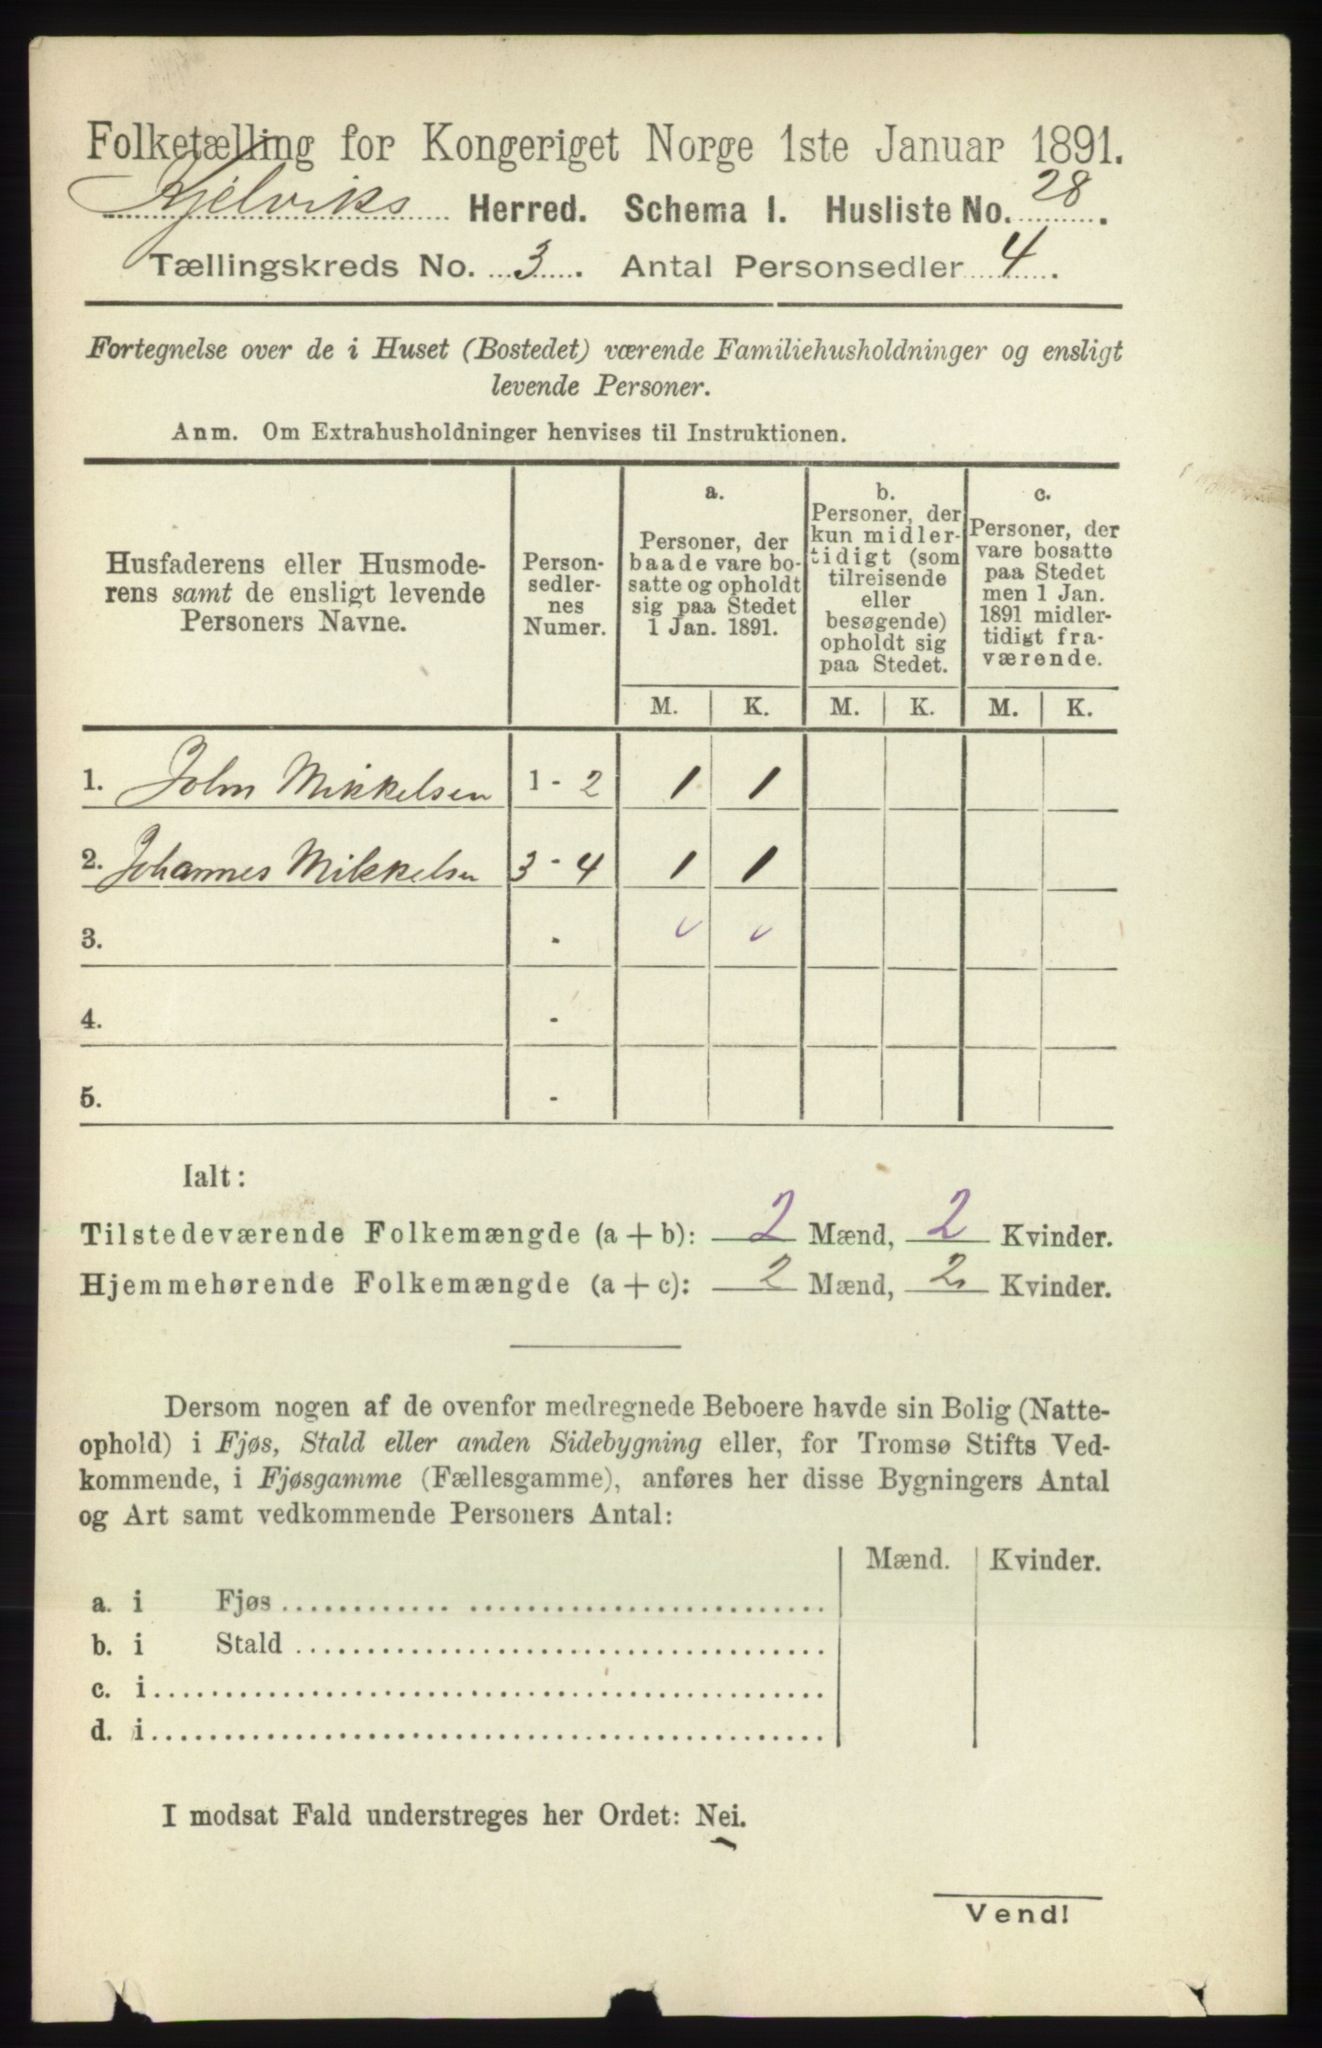 Folketælling for Kongeriget Norge 1ste Januar 1891.
Kjelviks Herred. Schema I. Husliste No. 28.
Tællingskreds No. 3. Antal Personsedler 4.
Fortegnelse over de i Huset (Bostedet) værende Familiehusholdninger og ensligt
levende Personer.
Anm. Om Extrahusholdninger henvises til Instruktionen.
Husfaderens eller Husmode-
rens samt de ensligt levende
Personers Navne.
Person-
sedler-
nes
Numer.
a.
Personer, der
baade vare bo-
satte og opholdt
sig paa Stedet
1 Jan. 1891.
b.
Personer, der
kun midler-
tidigt (som
tilreisende
eller
besøgende)
opholdt sig
paa Stedet.
c.
Personer, der
vare bosatte
paa Stedet
men 1 Jan.
1891 midler-
tidigt fra-
værende.
M. K. M. K. M. K.
1. John Mikkelsen 1 - 2 1 1
2. Johannes Mikkelsen 3 - 4 1 1
3. -
4. -
5. -
Ialt:
Tilstedeværende Folkemængde (a + b): 2 Mænd, 2 Kvinder.
Hjemmehørende Folkemængde (a + c): 2 Mænd, 2 Kvinder.
Dersom nogen af de ovenfor medregnede Beboere havde sin Bolig (Natte-
ophold) i Fjøs, Stald eller anden Sidebygning eller, for Tromsø Stifts Ved-
kommende, i Fjøsgamme (Fællesgamme), anføres her disse Bygningers Antal
og Art samt vedkommende Personers Antal:
Mænd. Kvinder.
a. i Fjøs
b. i Stald
c. i
d. i
I modsat Fald understreges her Ordet: Nei.
Vend!